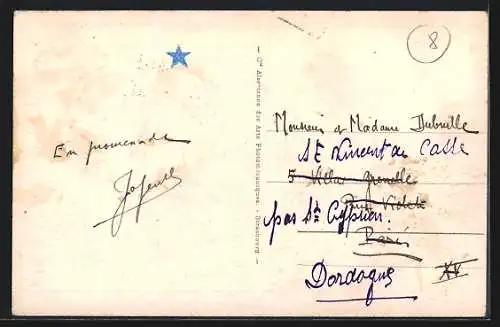 8
En promenade
Cie Alsacienne des Arts Photomécaniques - Strasbourg
Monsieur & Madame Dubrulle
St Vincent de Cosse
5 Villa Grenelle
Rue Violet
par St Cyprien
Paris
Dordogne
XV